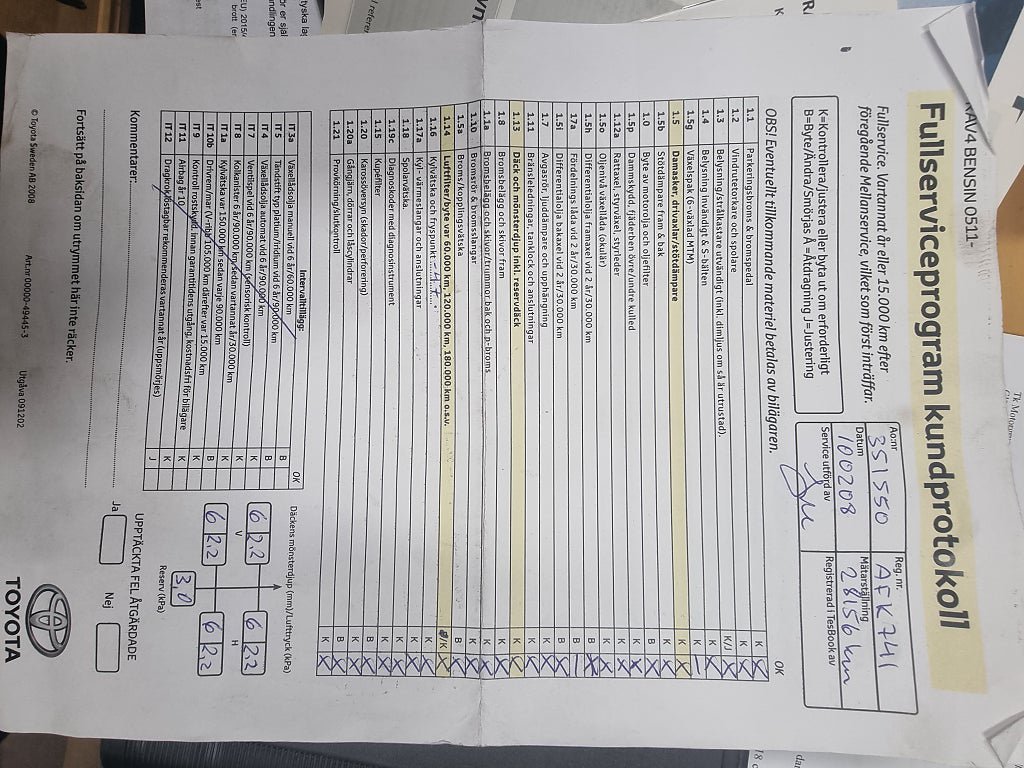 RAV4 BENSIN 0511-
Fullserviceprogram kundprotokoll
Fullservice. Vartannat år eller 15.000 km efter
föregående Mellanservice, vilket som först inträffar.
K=Kontrollera/justera eller byta ut om erforderligt
B=Byte/Ändra/Smörjas Å = Åtdragning J= Justering
Ao.nr
351550
Reg. nr.
AFK741
Datum
100208
Mätarställning
28156 km
Service utförd av
Registrerad i TesBook av
OBS! Eventuellt tillkommande material betalas av bilägaren.
OK
1.1 Parkeringsbroms & bromspedal K X
1.2 Vindrutetorkare och spolare K X
1.3 Belysning/strålkastare utvändigt (inkl. dimljus om så är utrustad). K/J X
1.4 Belysning invändigt & S-bälten K X
1.5g Växelspak (6-växlad MTM) K
1.5 Damasker, drivaxlar/stötdämpare K X
1.5b Stötdämpare fram & bak K X
1.0 Byte av motorolja och oljefilter B X
1.5p Dammskydd, fjäderben övre/undre kulled K X
1.12a Rattaxel, styrväxel, styrleder K X
1.5o Oljenivå växellåda (okulär) K X
1.5h Differentialolja framaxel vid 2 år/30.000 km B
17a Fördelnings låda vid 2 år/30.000 km B
1.5i Differentialolja bakaxel vid 2 år/30.000 km B
1.7 Avgasrör, ljuddämpare och upphängning K X
1.11 Bränsleledningar, tanklock och anslutningar K X
1.13 Däck och mönsterdjup inkl. reservdäck K X
1.8 Bromsbelägg och skivor fram K X
1.1a Bromsbelägg och skivor/trummor bak och p-broms K X
1.10 Bromsrör & bromsslangar K X
1.5a Broms/kopplingsvätska B X
1.14 Luftfilter/byte var 60.000 km, 120.000 km, 180.000 km o.s.v. B/K X
1.16 Kylvätska och fryspunkt K X
1.17a Kyl- värmeslangar och anslutningar K X
1.18 Spolarvätska K X
1.19c Diagnoskoder med diagnosinstrument K X
1.15 Kupéfilter K X
1.20a Karossöversyn (skador/perforering) B X
1.20a Gångjärn, dörrar och låscylindrar K X
1.21 Provkörning/slutkontroll K X
Intervalltillägg:
OK
IT 3a Växellådsolja manuell vid 6 år/60.000 km B
IT 4 Tändstift typ platium/iridium vid 6 år/90.000 km B
IT 5 Växellådsolja automat vid 6 år/90.000 km B
IT 7 Ventilspel vid 6 år/90.000 km (sensorisk kontroll) K
IT 8 Kolkanister 6 år/90.000 km sedan vartannat år/30.000 km K
IT 1a Kylvätska var 150.000 km sedan varje 90.000 km K
IT 10b Drivrem/mar (V-rib) 105.000 km därefter var 15.000 km B
IT 9 Kontroll rostskydd. Innan garantitidens utgång, kostnadsfri för bilägare K
IT 11 Airbag år 10 K
IT 12 J
Däckens mönsterdjup (mm)/Lufttryck (kPa)
6 2.2 V 6 2.2
6 2.2 H 6 2.2
Reserv (kPa)
3,0
Kommentarer:
UPPTÄCKTA FEL ÅTGÄRDADE
Ja
Nej
Fortsätt på baksidan om utrymmet här inte räcker.
© Toyota Sweden AB 2008
Art.nr 00000-49445-3
Utgåva 091202
TOYOTA